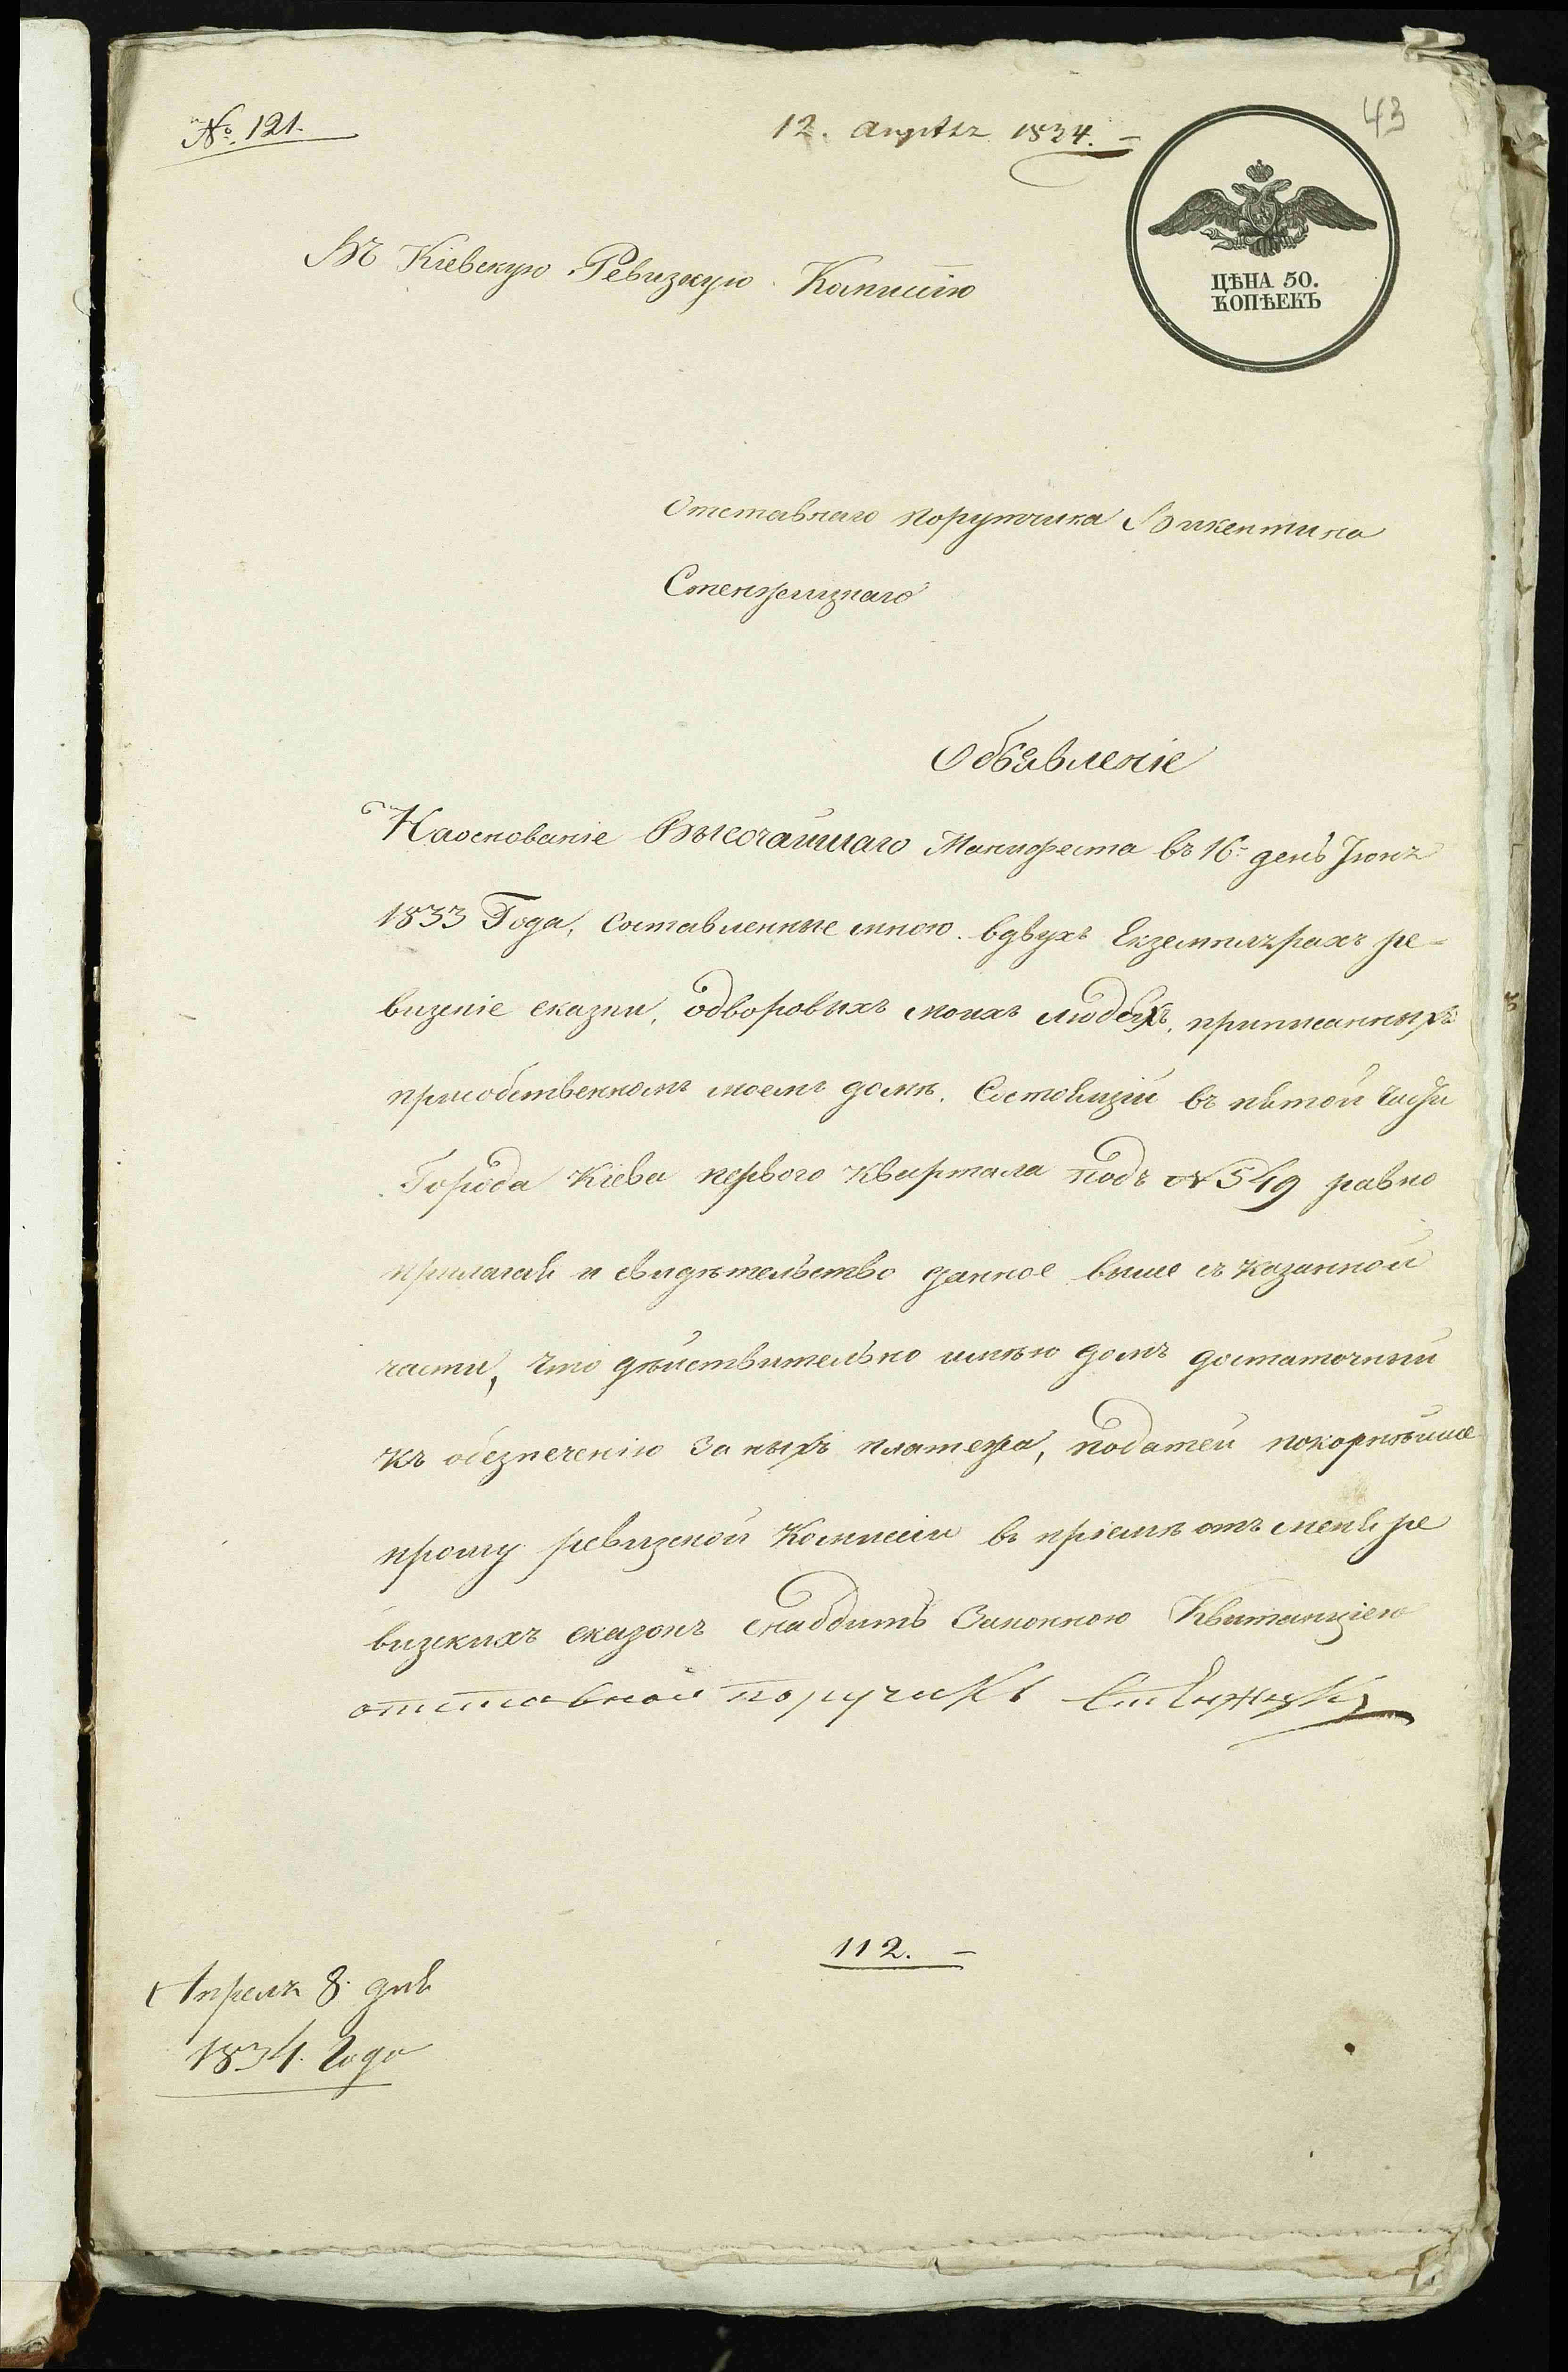 43
№ 121.
12. апреля 1834.
ЦѢНА 50.
КОПѢЕКЪ
Въ Кіевскую Ревизкую Коммисію
Отставнаго порутчика Викентина
Стенжицкаго
Объявленіе
Наоснованіе Высочайшаго Манифеста въ 16. день Іюня
1833 Года, составленные мною вдвухъ Екземплярахъ ре-
визскіе сказки, одворовыхъ моихъ людехъ, приписанныхъ
присобственномъ моемъ домѣ. Состоящій въ пятой части
Города Кіева первого Квартала подъ № 549 равно
прилагая и свидѣтельство данное выше съказанной
части, что дѣйствительно имѣю домъ достаточный
къ обезпеченію за ныхъ платежа, податей покорнѣйше
прошу ревизской Комисіи въ пріемѣ отъ меня ре
визскихъ сказокъ снабдить Законною Квитанціею
отставной поручикъ Стенжицкі
112.
Апреля 8. дня
1834. Года